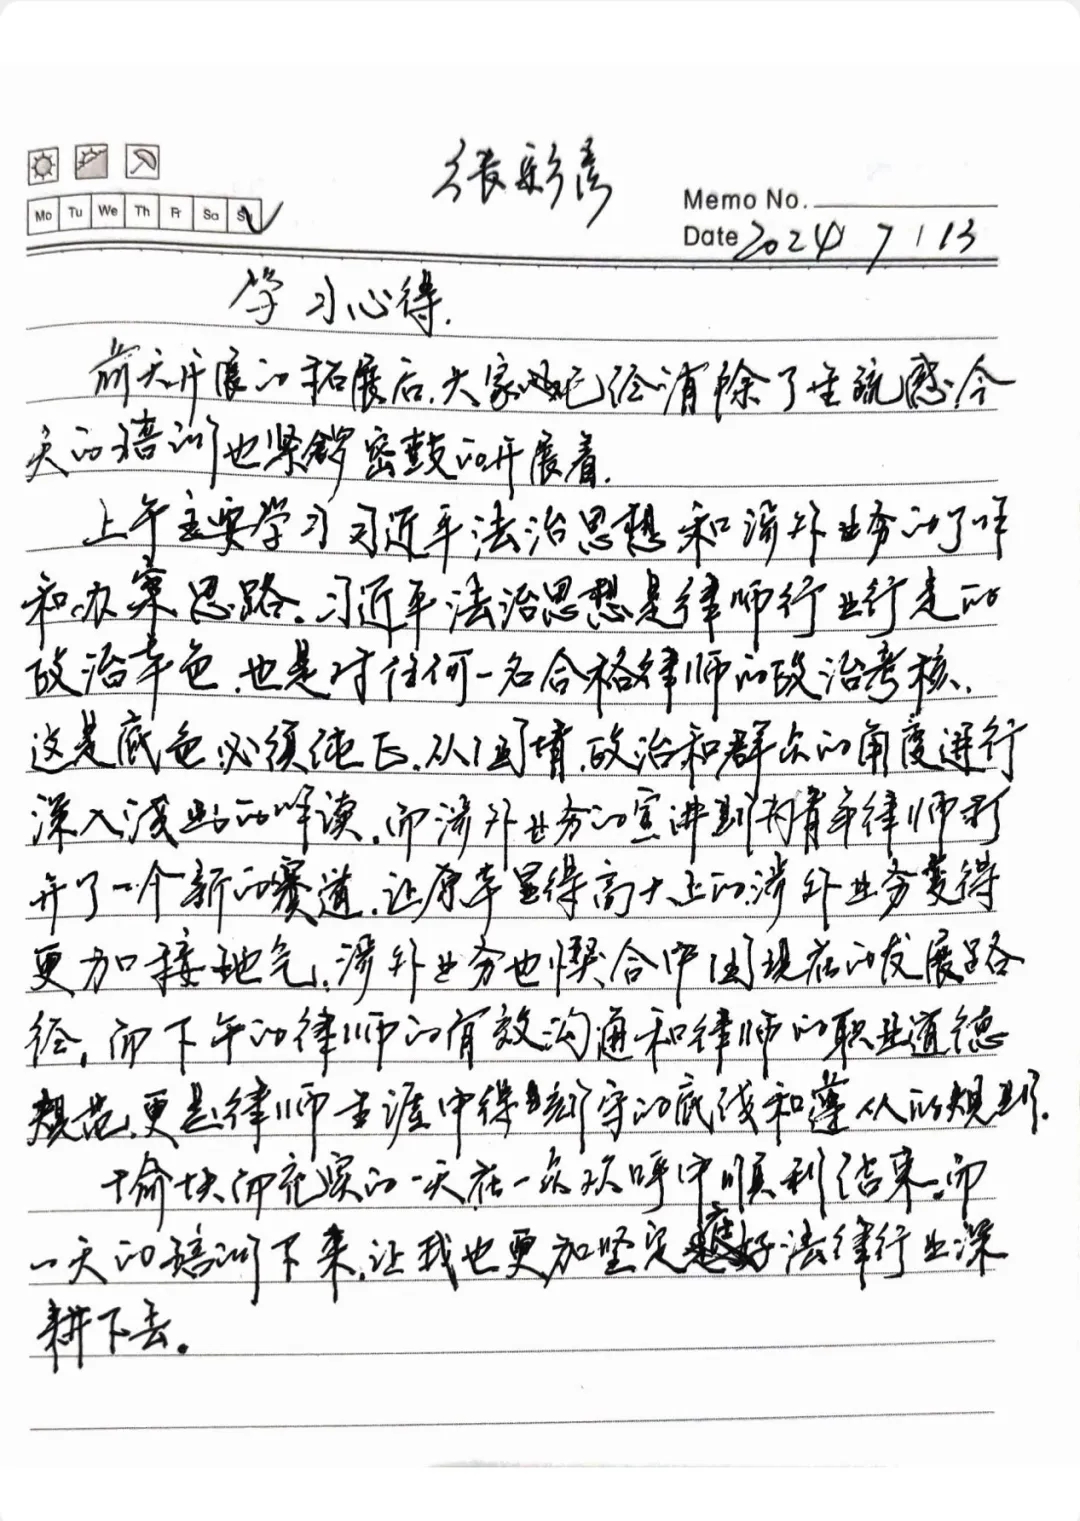 张彩彦
Mo Tu We Th Fr Sa
Memo No.
Date 2024/7/13
学习心得.
前天开展的拓展后,大家已经消除了生疏感,今
天的培训也紧锣密鼓的开展着.
上午主要学习习近平法治思想和涉外业务的了解
和办案思路。习近平法治思想是律师行业行走的
政治本色,也是对任何一名合格律师的政治考核,
这是底色,必须纯正,从国情,政治和群众的角度进行
深入浅出的解读,而涉外业务的宣讲则为青年律师打
开了一个新的赛道,让原本显得高大上的涉外业务变得
更加接地气,涉外业务也契合中国现在的发展路
径,而下午的律师的有效沟通和律师的职业道德
规范,更是律师生涯中得守的底线和遵从的规则.
愉快而充实的一天在一次次欢呼中顺利结束,而
一天的培训下来,让我也更加坚定法律行业深
耕下去。